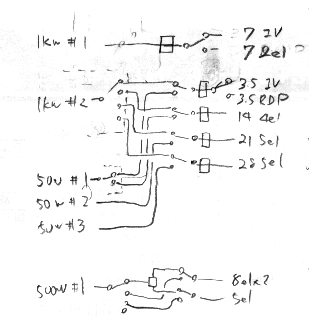 1kw #1
7 IV
7 2el
1kw #2
3.5 IV
3.5 RDP
14 4el
21 5el
28 5el
50w #1
50w #2
50w #3
500w #1
8elx2
5el